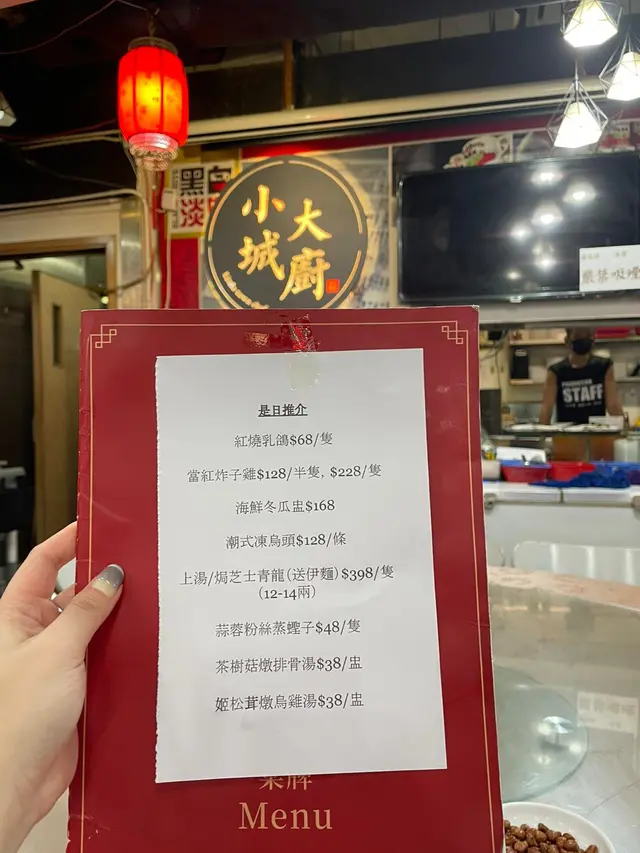 小城
大廚
嚴禁吸煙
STAFF
是日推介
紅燒乳鴿$68/隻
當紅炸子雞$128/半隻, $228/隻
海鮮冬瓜盅$168
潮式凍烏頭$128/條
上湯/焗芝士青龍(送伊麵) $398/隻
(12-14兩)
蒜蓉粉絲蒸蟶子$48/隻
茶樹菇燉排骨湯$38/盅
姬松茸燉烏雞湯$38/盅
菜牌
Menu